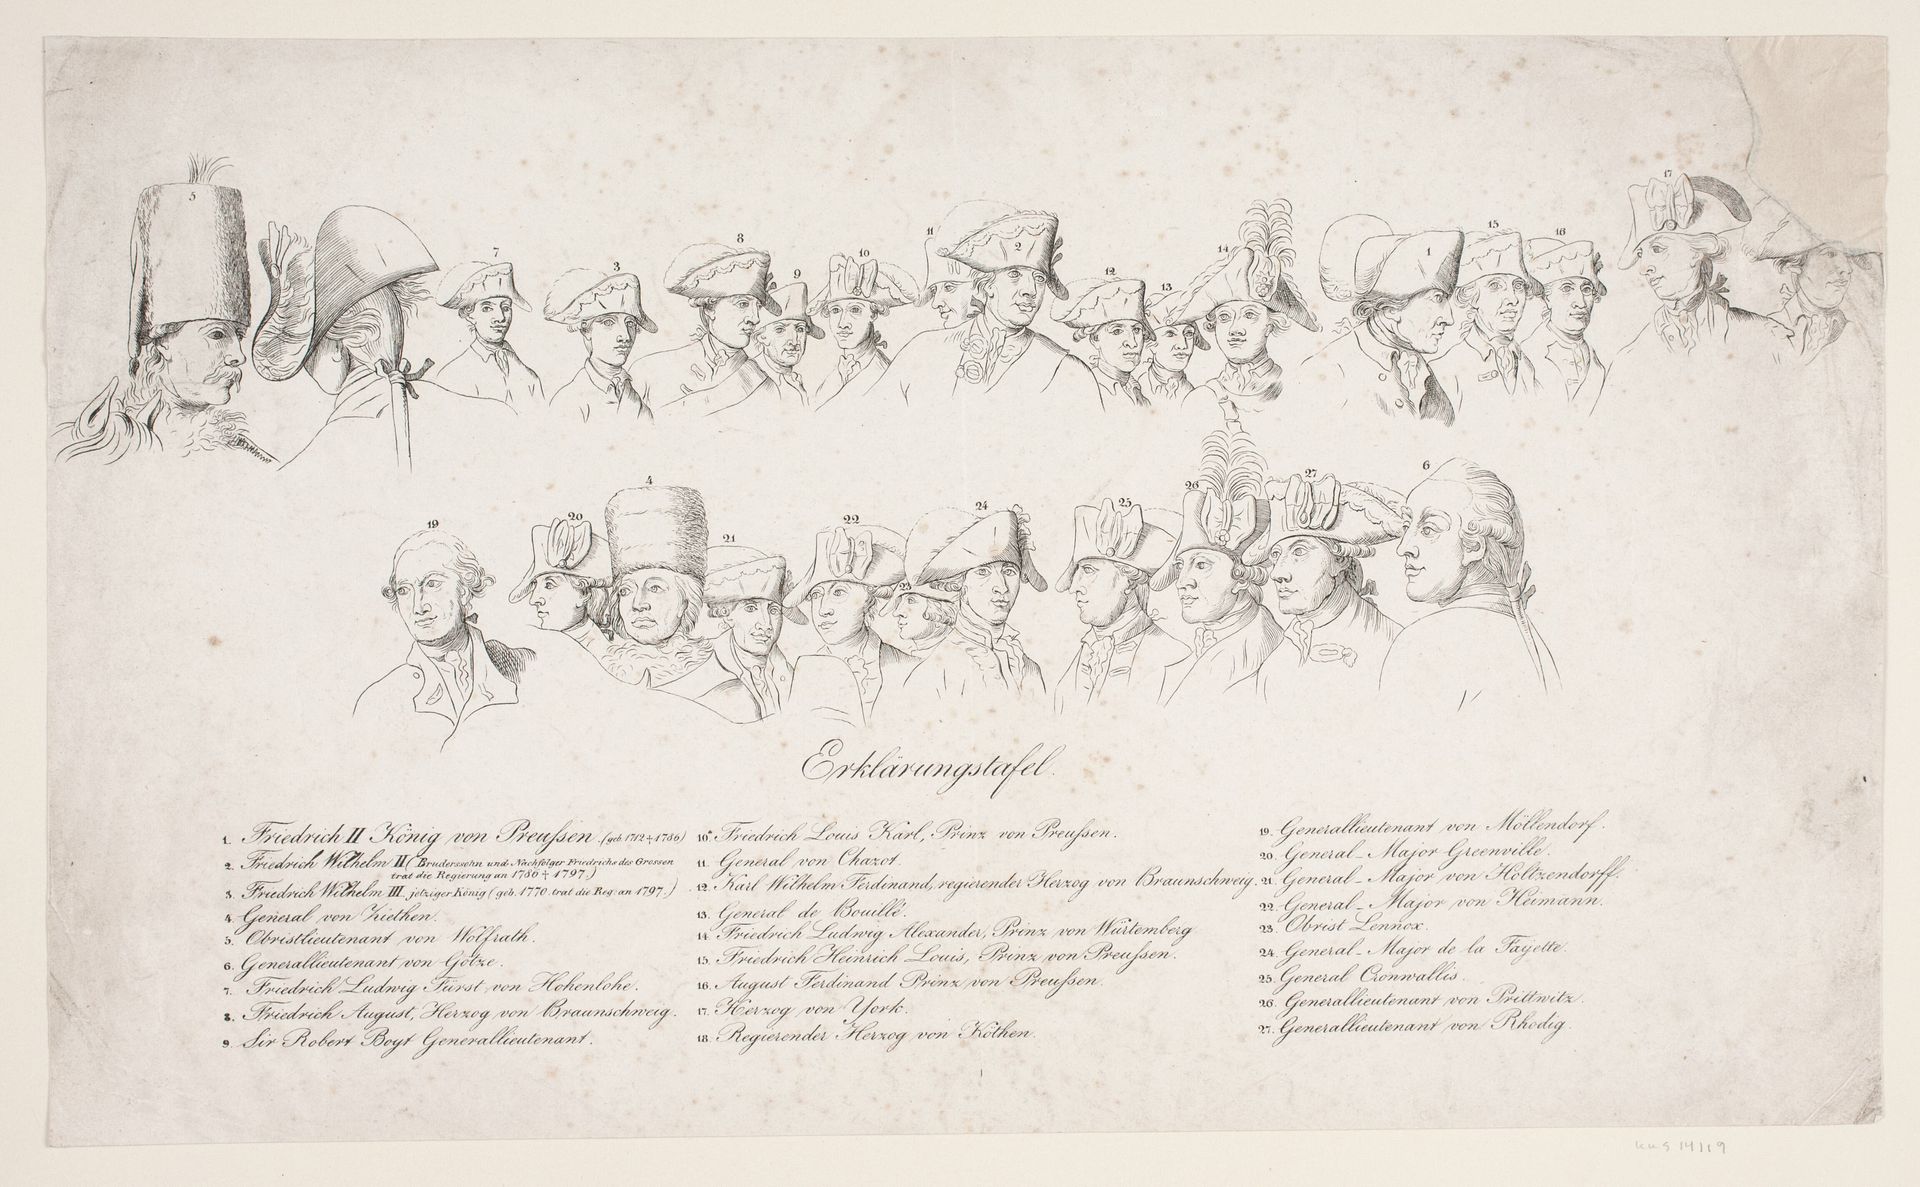 5
7
3
8
9
10
11
2
12
13
14
1
15
16
17
19
20
4
21
22
23
24
25
26
27
6
Erklärungstafel.
1. Friedrich II König von Preußen. (geb. 1712 † 1786)
2. Friedrich Wilhelm II (Bruderssohn und Nachfolger Friedrichs des Grossen
trat die Regierung an 1786 † 1797.)
3. Friedrich Wilhelm III. jetziger König (geb. 1770. trat die Reg: an 1797.)
4. General von Ziethen.
5. Obristlieutenant von Wolfrath.
6. Generallieutenant von Götze.
7. Friedrich Ludwig Fürst von Hohenlohe.
8. Friedrich August, Herzog von Braunschweig.
9. Sir Robert Boyt Generallieutenant.
10. Friedrich Louis Karl, Prinz von Preußen.
11. General von Chazot.
12. Karl Wilhelm Ferdinand, regierender Herzog von Braunschweig.
13. General de Bouillé.
14. Friedrich Ludwig Alexander, Prinz von Würtemberg
15. Friedrich Heinrich Louis, Prinz von Preußen.
16. August Ferdinand Prinz von Preußen.
17. Herzog von York.
18. Regierender Herzog von Köthen.
19. Generallieutenant von Möllendorf.
20. General-Major Greenville.
21. General-Major von Holtzendorff.
22. General-Major von Heimann.
23. Obrist Lennox.
24. General-Major de la Fayette.
25. General Cronwallis.
26. Generallieutenant von Prittwitz.
27. Generallieutenant von Rhodig
KKS 14119